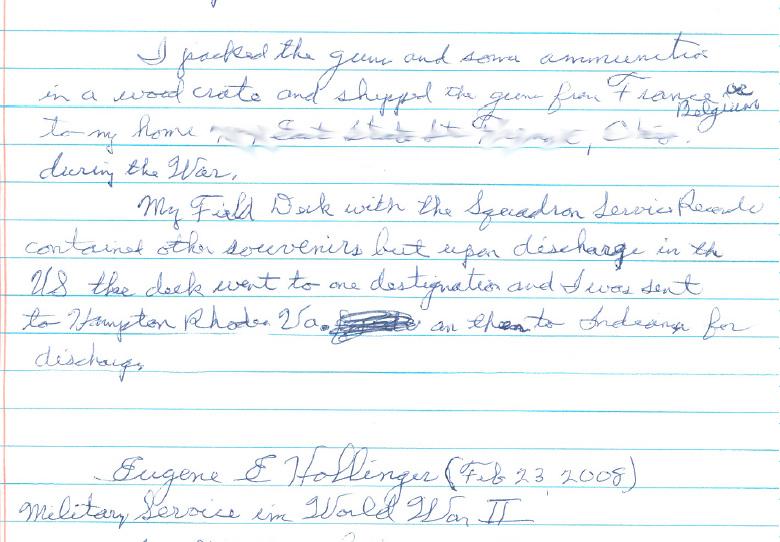 I packed the gun and some ammunitio
in a wood crate and shipped the gun from France or
Belgium
to my home
during the War.
My Field Desk with the Squadron Service Records
contained other souvenirs but upon discharge in the
US the desk went to one destignation and I was sent
to Hampton Rhodes Va. an then to Indiana for
discharge
Eugene E Hollinger (Feb 23, 2008)
Military Service in World War II